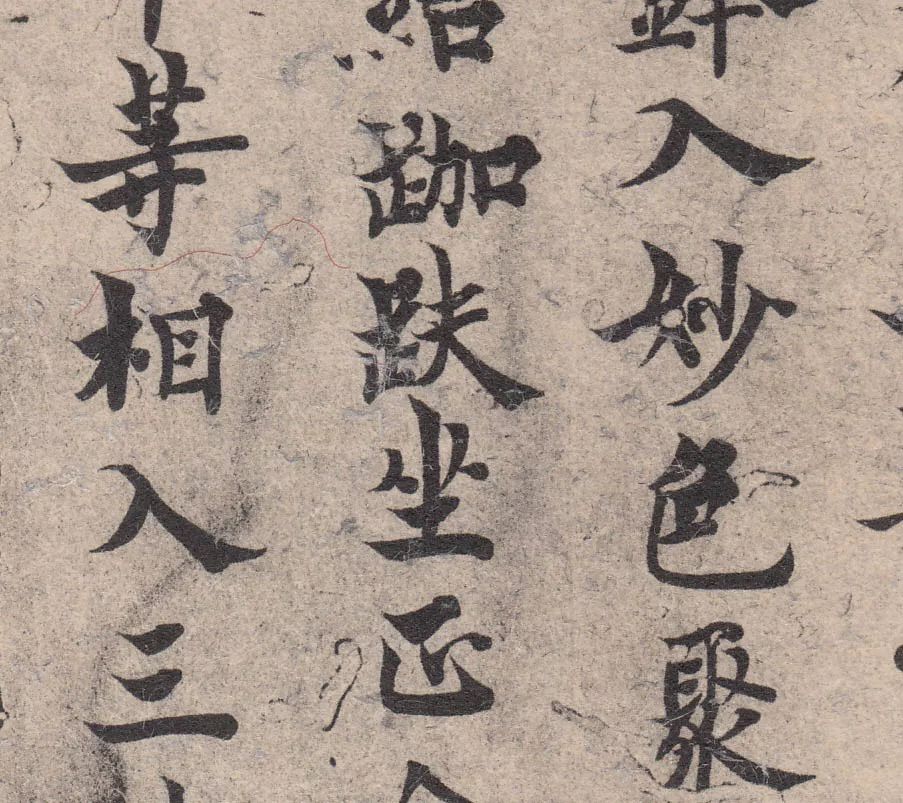 入妙色聚
結跏趺坐正
等相入三